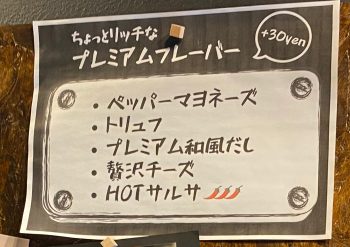 ちょっとリッチな
プレミアムフレーバー
+30yen
・ペッパーマヨネーズ
・トリュフ
・プレミアム和風だし
・贅沢チーズ
・HOTサルサ